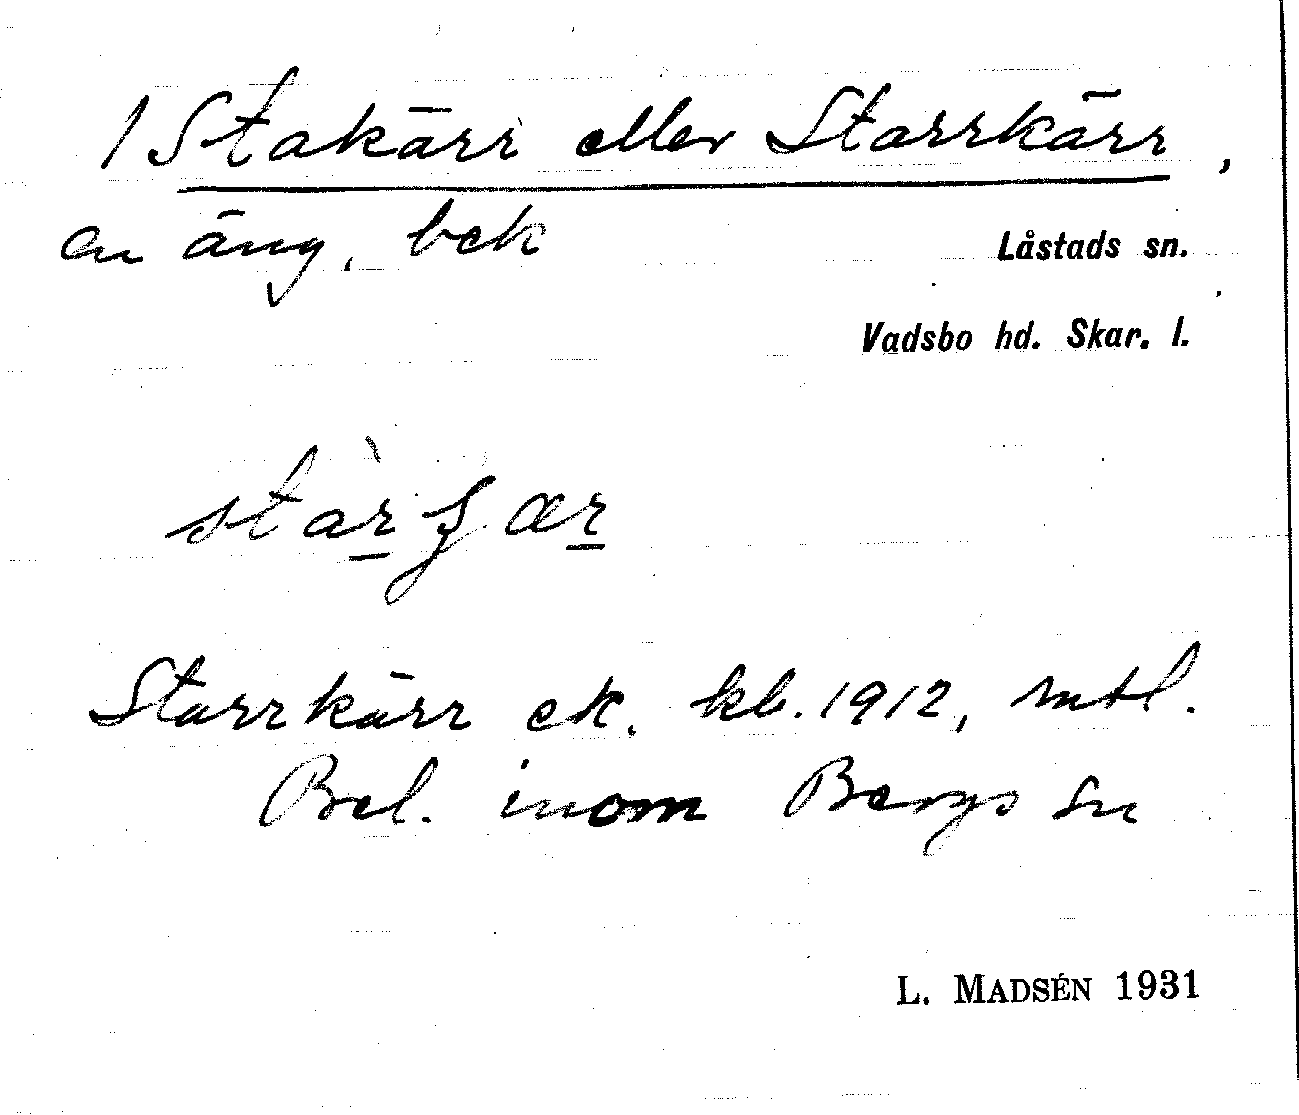 1 Stakärr eller Starrkärr,
en äng, bek
Låstads sn.
Vadsbo hd. Skar. l.
Starrkärr ek. kb. 1912, mtl.
Bel. inom Bergs sn
L. MADSÉN 1931